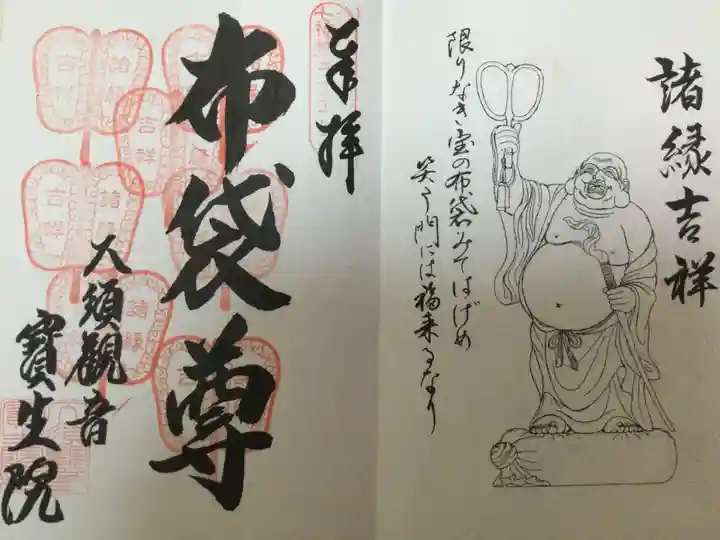 諸縁吉祥
限りなき宝の布袋みてはげめ
笑う門には福来るなり
奉拝
布袋尊
大須観音
寳生院
諸縁
吉祥
吉祥
諸縁
吉祥
諸縁